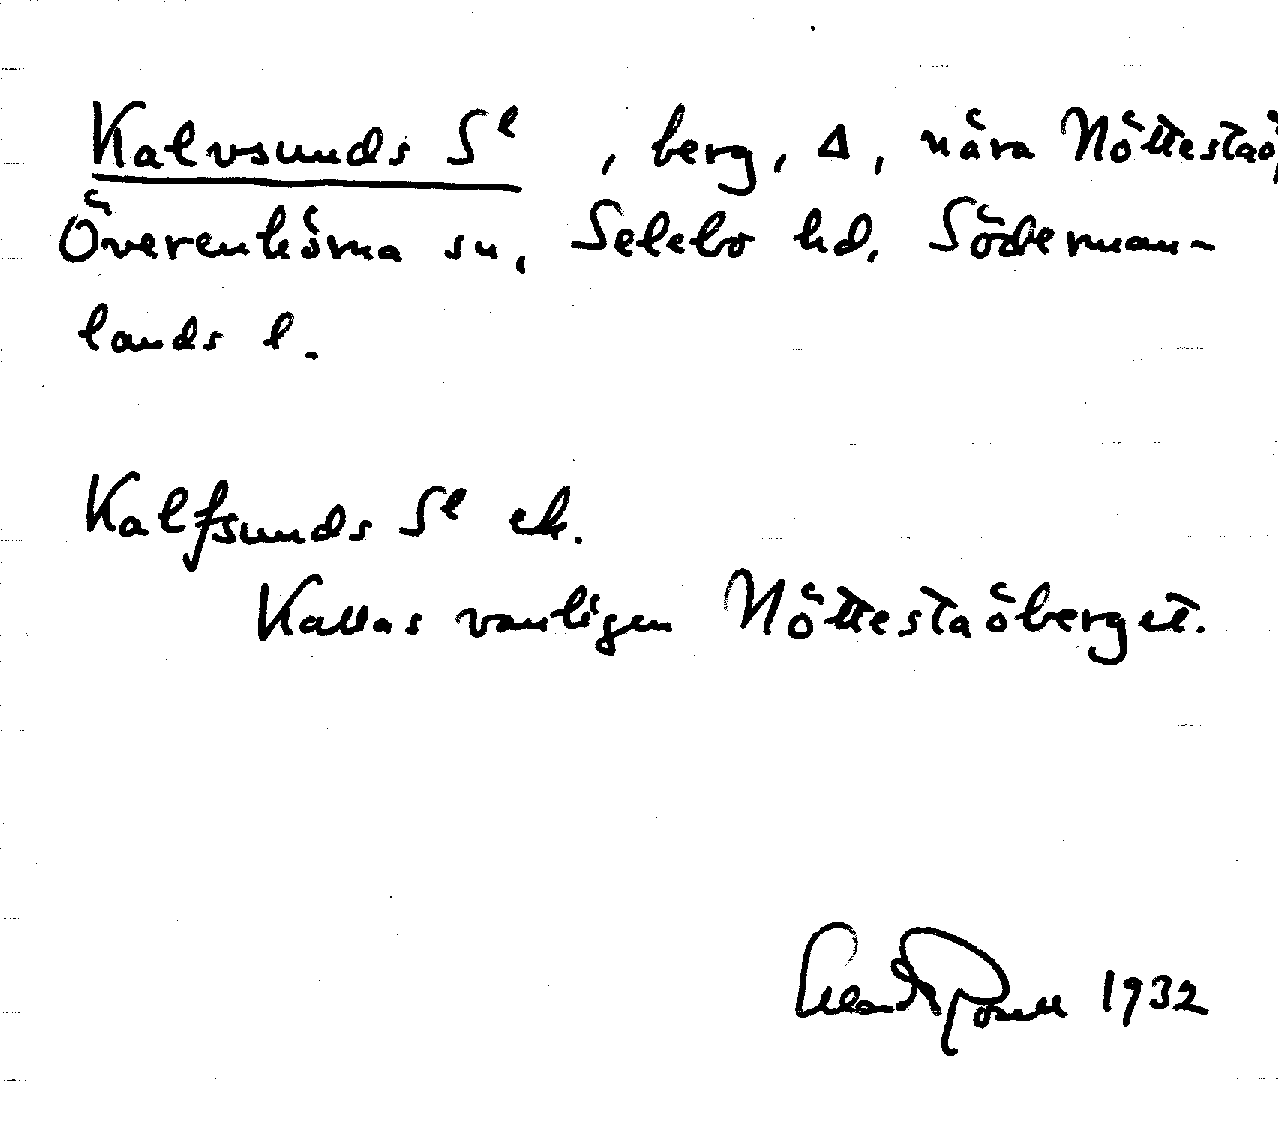 Kalvsunds Sl , berg, Δ, nära Nöttestaö,
Överenhörna sn, Selebo hd. Söderman-
lands l.
Kalfsunds Sl ek.
Kallas vanligen Nöttestaöberget.
1932